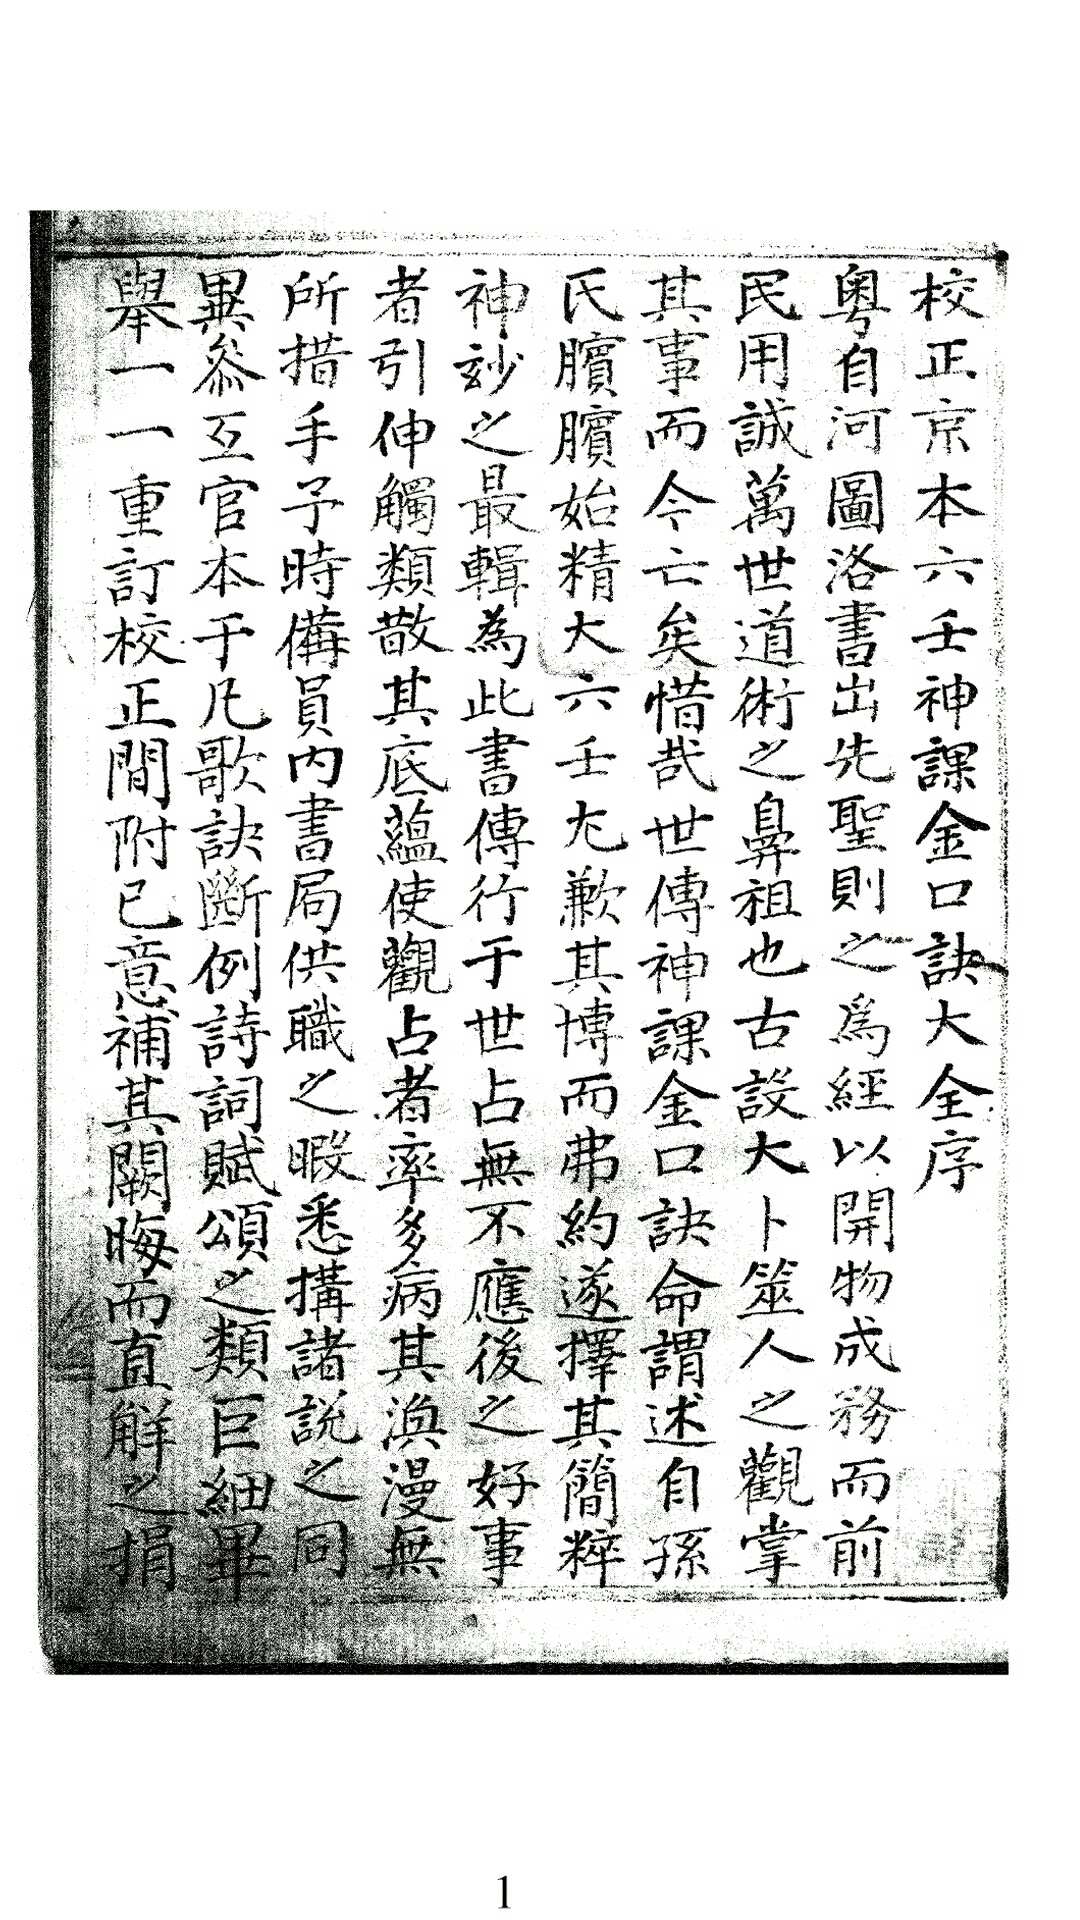 校正京本六壬神課金口訣大全序
粵自河圖洛書出先聖則之爲經以開物成務而前
民用誠萬世道術之鼻祖也古設大卜筮人之觀掌
其事而今亡矣惜哉世傳神課金口訣命謂述自孫
氏臏臏始精大六壬尢歉其博而弗約遂擇其簡粹
神玅之最輯為此書傳行于世占無不應後之好事
者引伸觸類散其底蘊使觀占者率多病其渙漫無
所措手予時備員内書局供職之暇悉搆諸説之同
異叅互官本于凢歌訣斷例詩詞賦頌之類巨細畢
舉一一重訂校正間附已意補其闕晦而直觧之捐
1